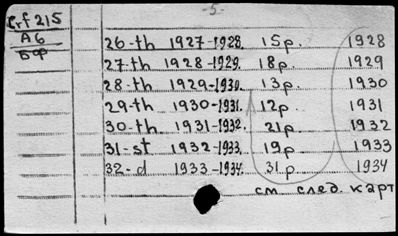 -5-
Crf 215
A6
БФ
26-th 1927-1928. 15p. 1928
27-th 1928-1929. 18p. 1929
28-th 1929-1930. 13p. 1930
29-th 1930-1931. 12p. 1931
30-th 1931-1932. 21p. 1932
31-st 1932-1933. 19p 1933
32-d 1933-1934. 31p. 1934
см. след. карт